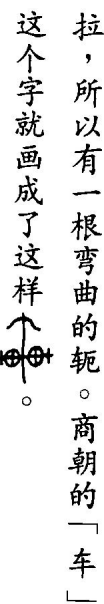 拉，所以有一根弯曲的轭。商朝的「车」
这个字就画成了这样。